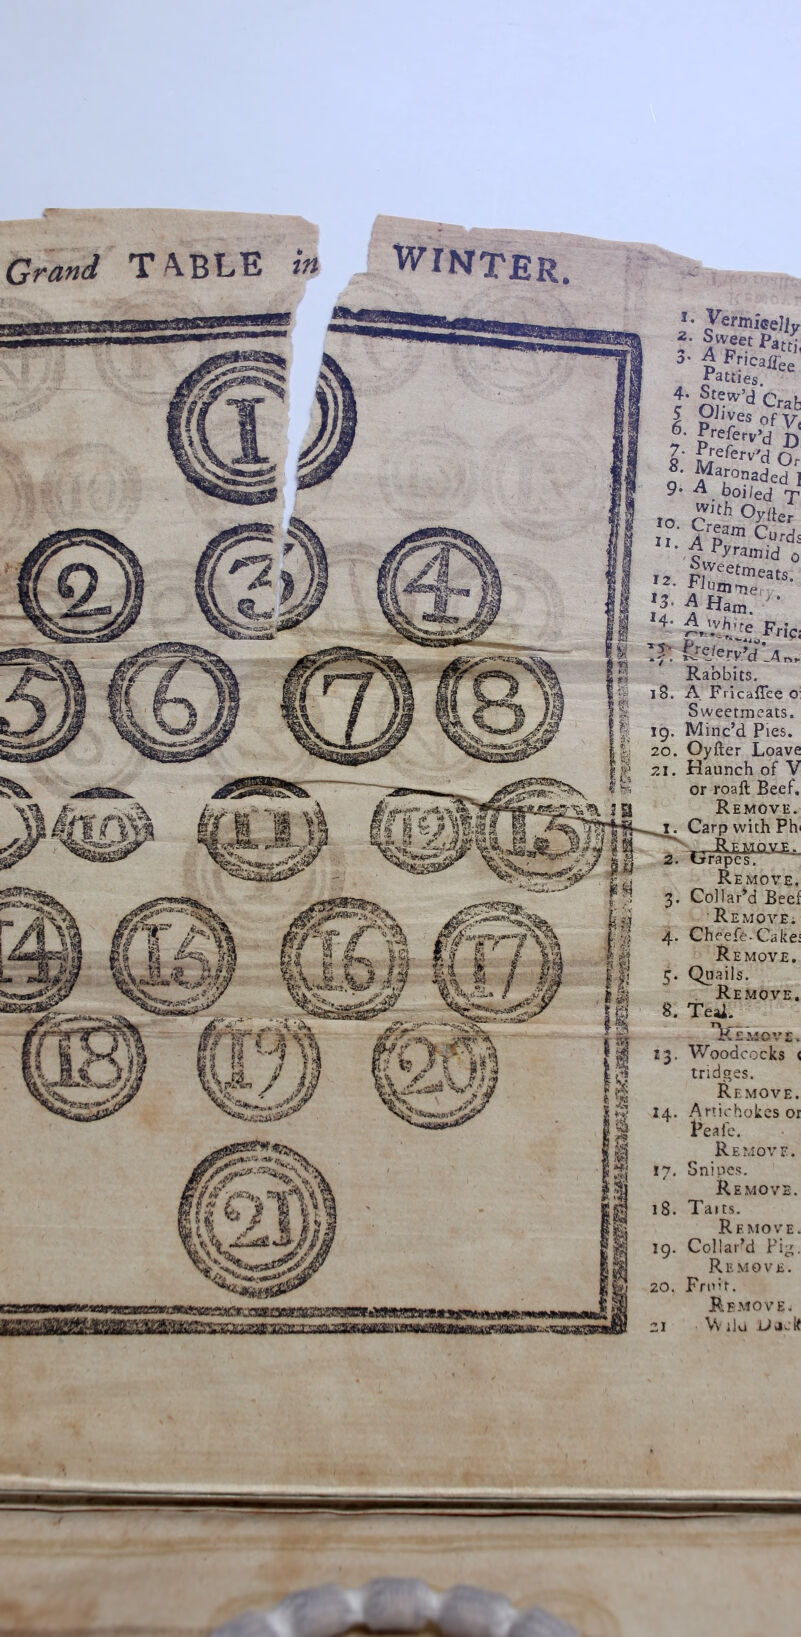 Grand TABLE in WINTER.
1
2 3 4
5 6 7 8
10 11 12 13
14 15 16 17
18 19 20
21
1. Vermiselly
2. Sweet
3. A Fricaſſee
Patties.
4. Stew'd
5 Olives of
6. Preſerv'd
7. Preſerv'd
8. Maronaded
9. A boiled
with Oyſter
10. Cream Curds
11. A Pyramid
Sweetmeats.
12. Flummery.
13. A Ham.
14. A white
Preſerv'd
Rabbits.
18. A Fricaſſee
Sweetmeats.
19. Minc'd Pies.
20. Oyſter
21. Haunch of
or roaſt Beef.
REMOVE.
1. Carp with
REMOVE.
2. Grapes.
REMOVE.
3. Collar'd Beef
REMOVE.
4. Cheeſe-Cakes
REMOVE.
5. Quails.
REMOVE.
8. Teal.
REMOVE.
13. Woodcocks
tridges.
REMOVE.
14. Artichokes or
Peaſe.
REMOVE.
17. Snipes.
REMOVE.
18. Tarts.
REMOVE.
19. Collar'd Pig.
REMOVE.
20. Fruit.
REMOVE.
21 Wild Duck